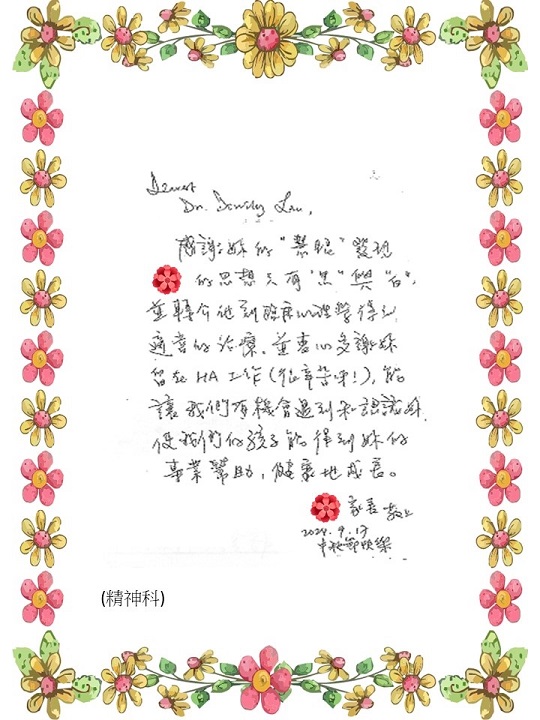 Dearest
Dr. Lau,
感謝妳的"慧眼"發現
的思想只有"黑"與"白",
並轉介他到臨床心理學得到
適當的治療。並衷心多謝妳
留在HA工作(很辛苦呀!),能
讓我們有機會遇到和認識妳,
使我們的孩子能得到妳的
專業幫助,健康地成長。
家長 敬上
2024.9.17
中秋節快樂
(精神科)